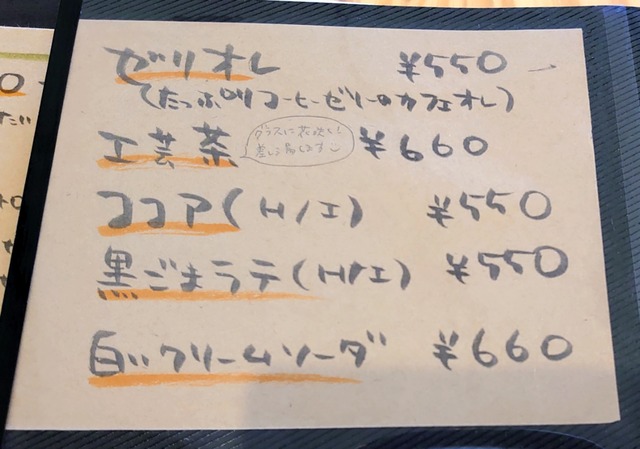 ゼリオレ ¥550
(たっぷりコーヒーゼリーのカフェオレ)
工芸茶 ¥660
グラスに花咲く!
差し湯します
ココア(H/I) ¥550
黒ごまラテ(H/I) ¥550
白いクリームソーダ ¥660